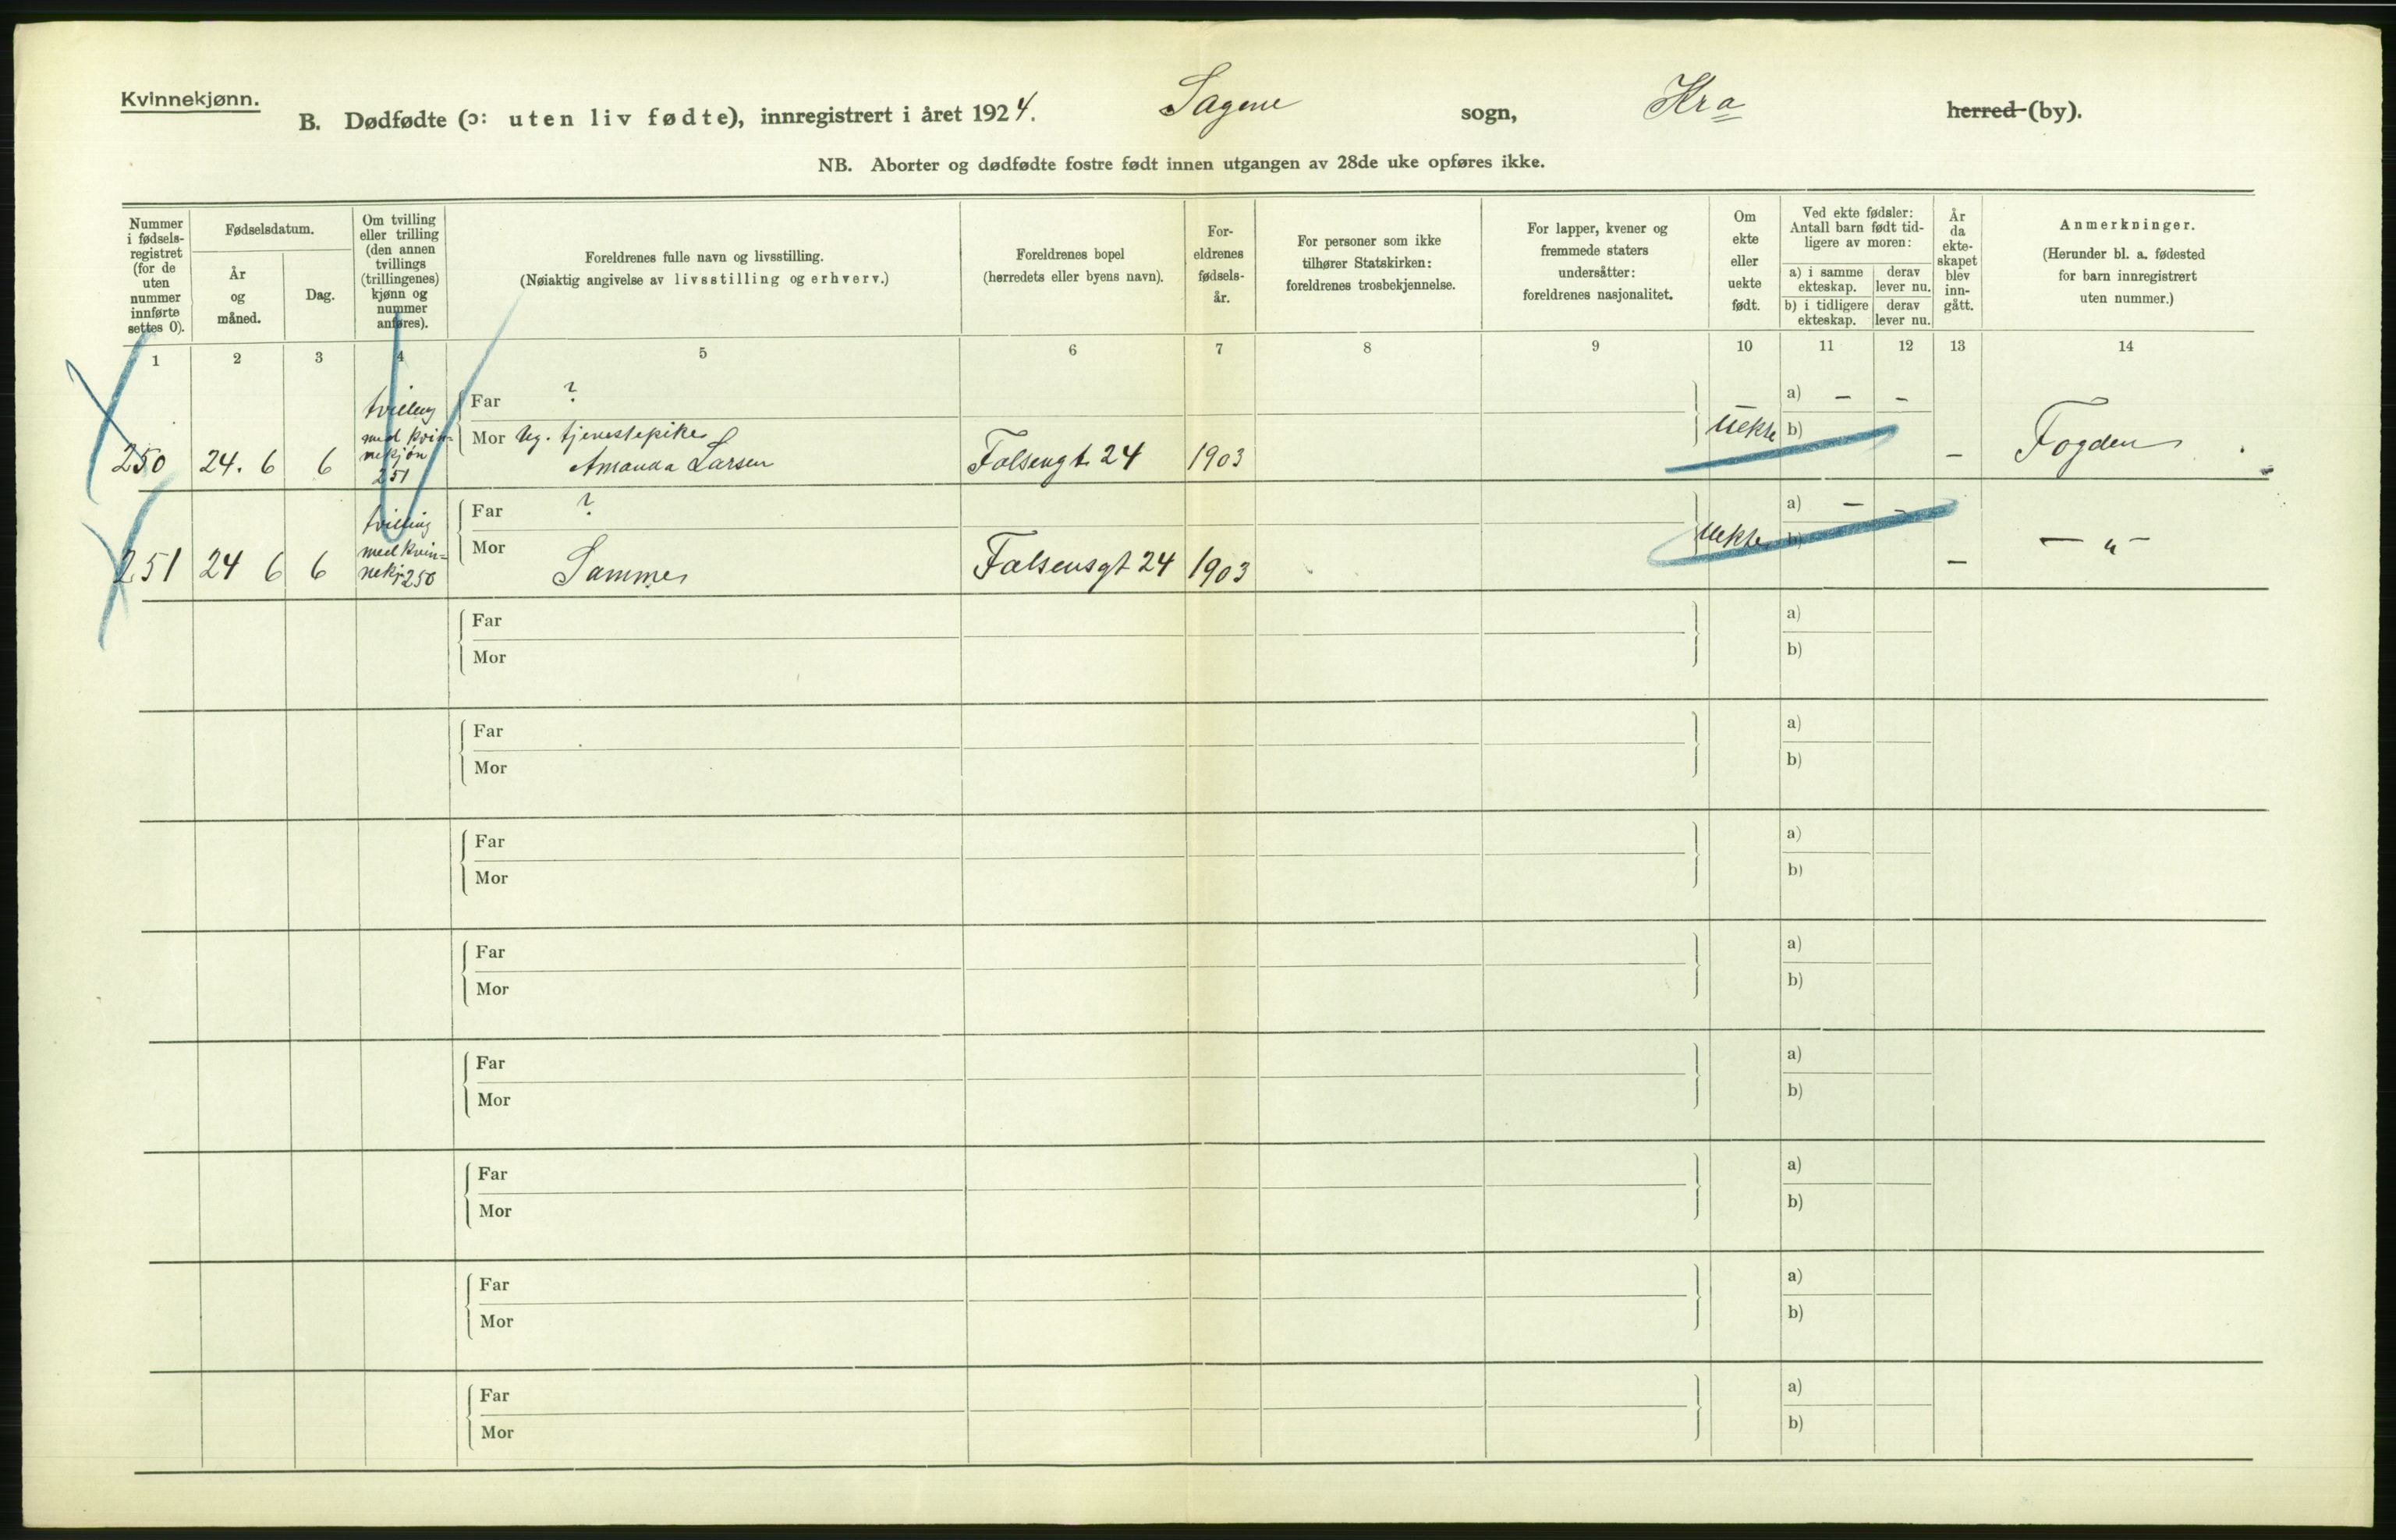 Kvinnekjønn.
B. Dødfødte (ɔ: uten liv fødte), innregistrert i året 1924. Sagene sogn, Kra herred (by).
NB. Aborter og dødfødte fostre født innen utgangen av 28de uke opføres ikke.
Nummer
i fødsels-
registret
(for de
uten
nummer
innførte
settes 0).
Fødselsdatum.
År
og
måned.
Dag.
Om tvilling
eller trilling
(den annen
tvillings
(trillingenes)
kjønn og
nummer
anføres).
Foreldrenes fulle navn og livsstilling.
(Nøiaktig angivelse av livsstilling og erhverv.)
Foreldrenes bopel
(herredets eller byens navn).
For-
eldrenes
fødsels-
år.
For personer som ikke
tilhører Statskirken:
foreldrenes trosbekjennelse.
For lapper, kvener og
fremmede staters
undersåtter:
foreldrenes nasjonalitet.
Om
ekte
eller
uekte
født.
Ved ekte fødsler:
Antall barn født tid-
ligere av moren:
a) i samme
ekteskap.
derav
lever nu.
b) i tidligere
ekteskap.
derav
lever nu.
År
da
ekte-
skapet
blev
inn-
gått.
Anmerkninger.
(Herunder bl. a. fødested
for barn innregistrert
uten nummer.)
1 2 3 4 5 6 7 8 9 10 11 12 13 14
tvilling
med kvin-
nekjøn
251
Far ?
Mor Ug. tjenestepike
Amanda Larsen
250 24. 6 6
Falsensgt. 24 1903
Uekte
a) – –
b)
–
Fogden
tvilling
med kvin=
nekj. 250
Far ?
Mor
Samme
251 24 6 6
Falsensgt 24 1903
Uekte
a) – –
b)
–
– " –
Far a)
Mor b)
Far a)
Mor b)
Far a)
Mor b)
Far a)
Mor b)
Far a)
Mor b)
Far a)
Mor b)
Far a)
Mor b)
Far a)
Mor b)